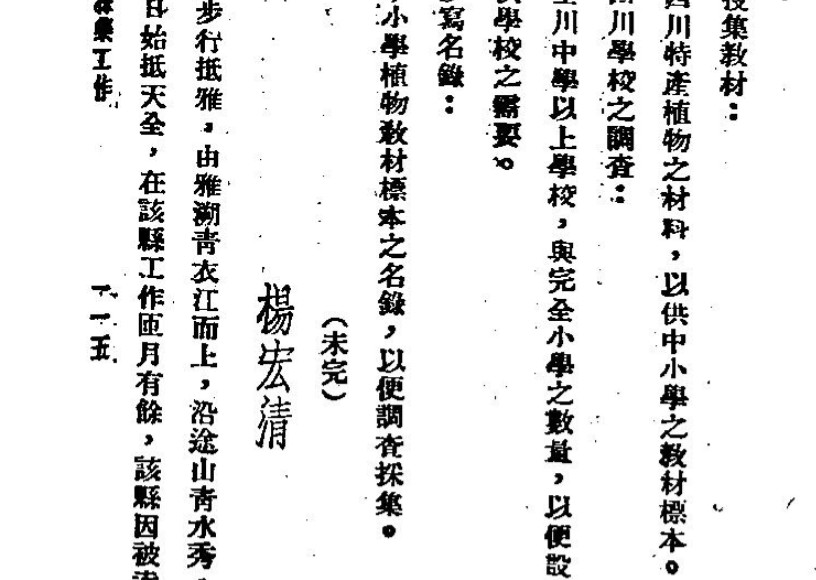 集教材：
四川特產植物之材料，以供中小學之教材標本。
川學校之調查：
川中學以上學校，與完全小學之數量，以便設
學校之需要。
寫名錄：
小學植物教材標本之名錄，以便調查採集。
（未完）
楊宏清
步行抵雅，由雅溯青衣江而上，沿途山青水秀，
始抵天全，在該縣工作匝月有餘，該縣因被
集工作
一五